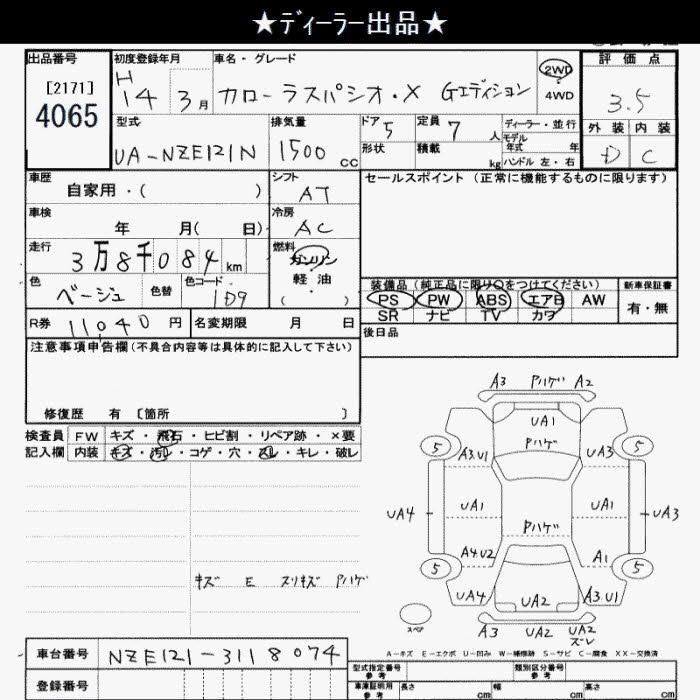 ★ディーラー出品★
出品番号 初度登録年月 車名・グレード 評価点
[2171] H 14 3月 カローラスパシオ・X Gエディション 2WD 4WD 3.5
4065
型式 排気量 ドア 定員 ディーラー・並行 外装 内装
UA-NZE121N 1500cc 5 7人 モデル年式 年 D C
形状 積載 kg ハンドル 左・右
車歴 シフト セールスポイント（正常に機能するものに限ります）
自家用・（ ） AT
車検 冷房
年 月( 日) AC
走行 燃料
3万8千084km ガソリン
軽油
( )
色 色替 色コード
ベージュ 1D9
装備品（純正品に限り○をつけてください） 新車保証書
PS PW ABS エアB AW 有・無
SR ナビ TV カワ
R券 11,040円 名変期限 月 日 後日品
注意事項申告欄（不具合内容等は具体的に記入して下さい）
修復歴 有 〔箇所 〕
検査員 FW キズ・飛石・ヒビ割・リペア跡・×要
記入欄 内装 キズ・汚レ・コゲ・穴・スレ・キレ・破レ
A3 Pハゲ A2
UA1
5 A3.U1 Pハゲ UA3 5
UA4 UA1 UA1 UA3
Pハゲ
5 A4.U2 A1 5
キズ E スリキズ Pハゲ
UA4 UA2 A3.U1
スペア A3 UA2 UA2
ズレ
A-キズ E-エクボ U-凹み W-補修跡 S-サビ C-腐食 XX-交換済
車台番号 NZE121-3118074
型式指定番号 参考 類別区分番号 参考
登録番号 車庫証明用 参考 長さ cm 幅 cm 高さ cm